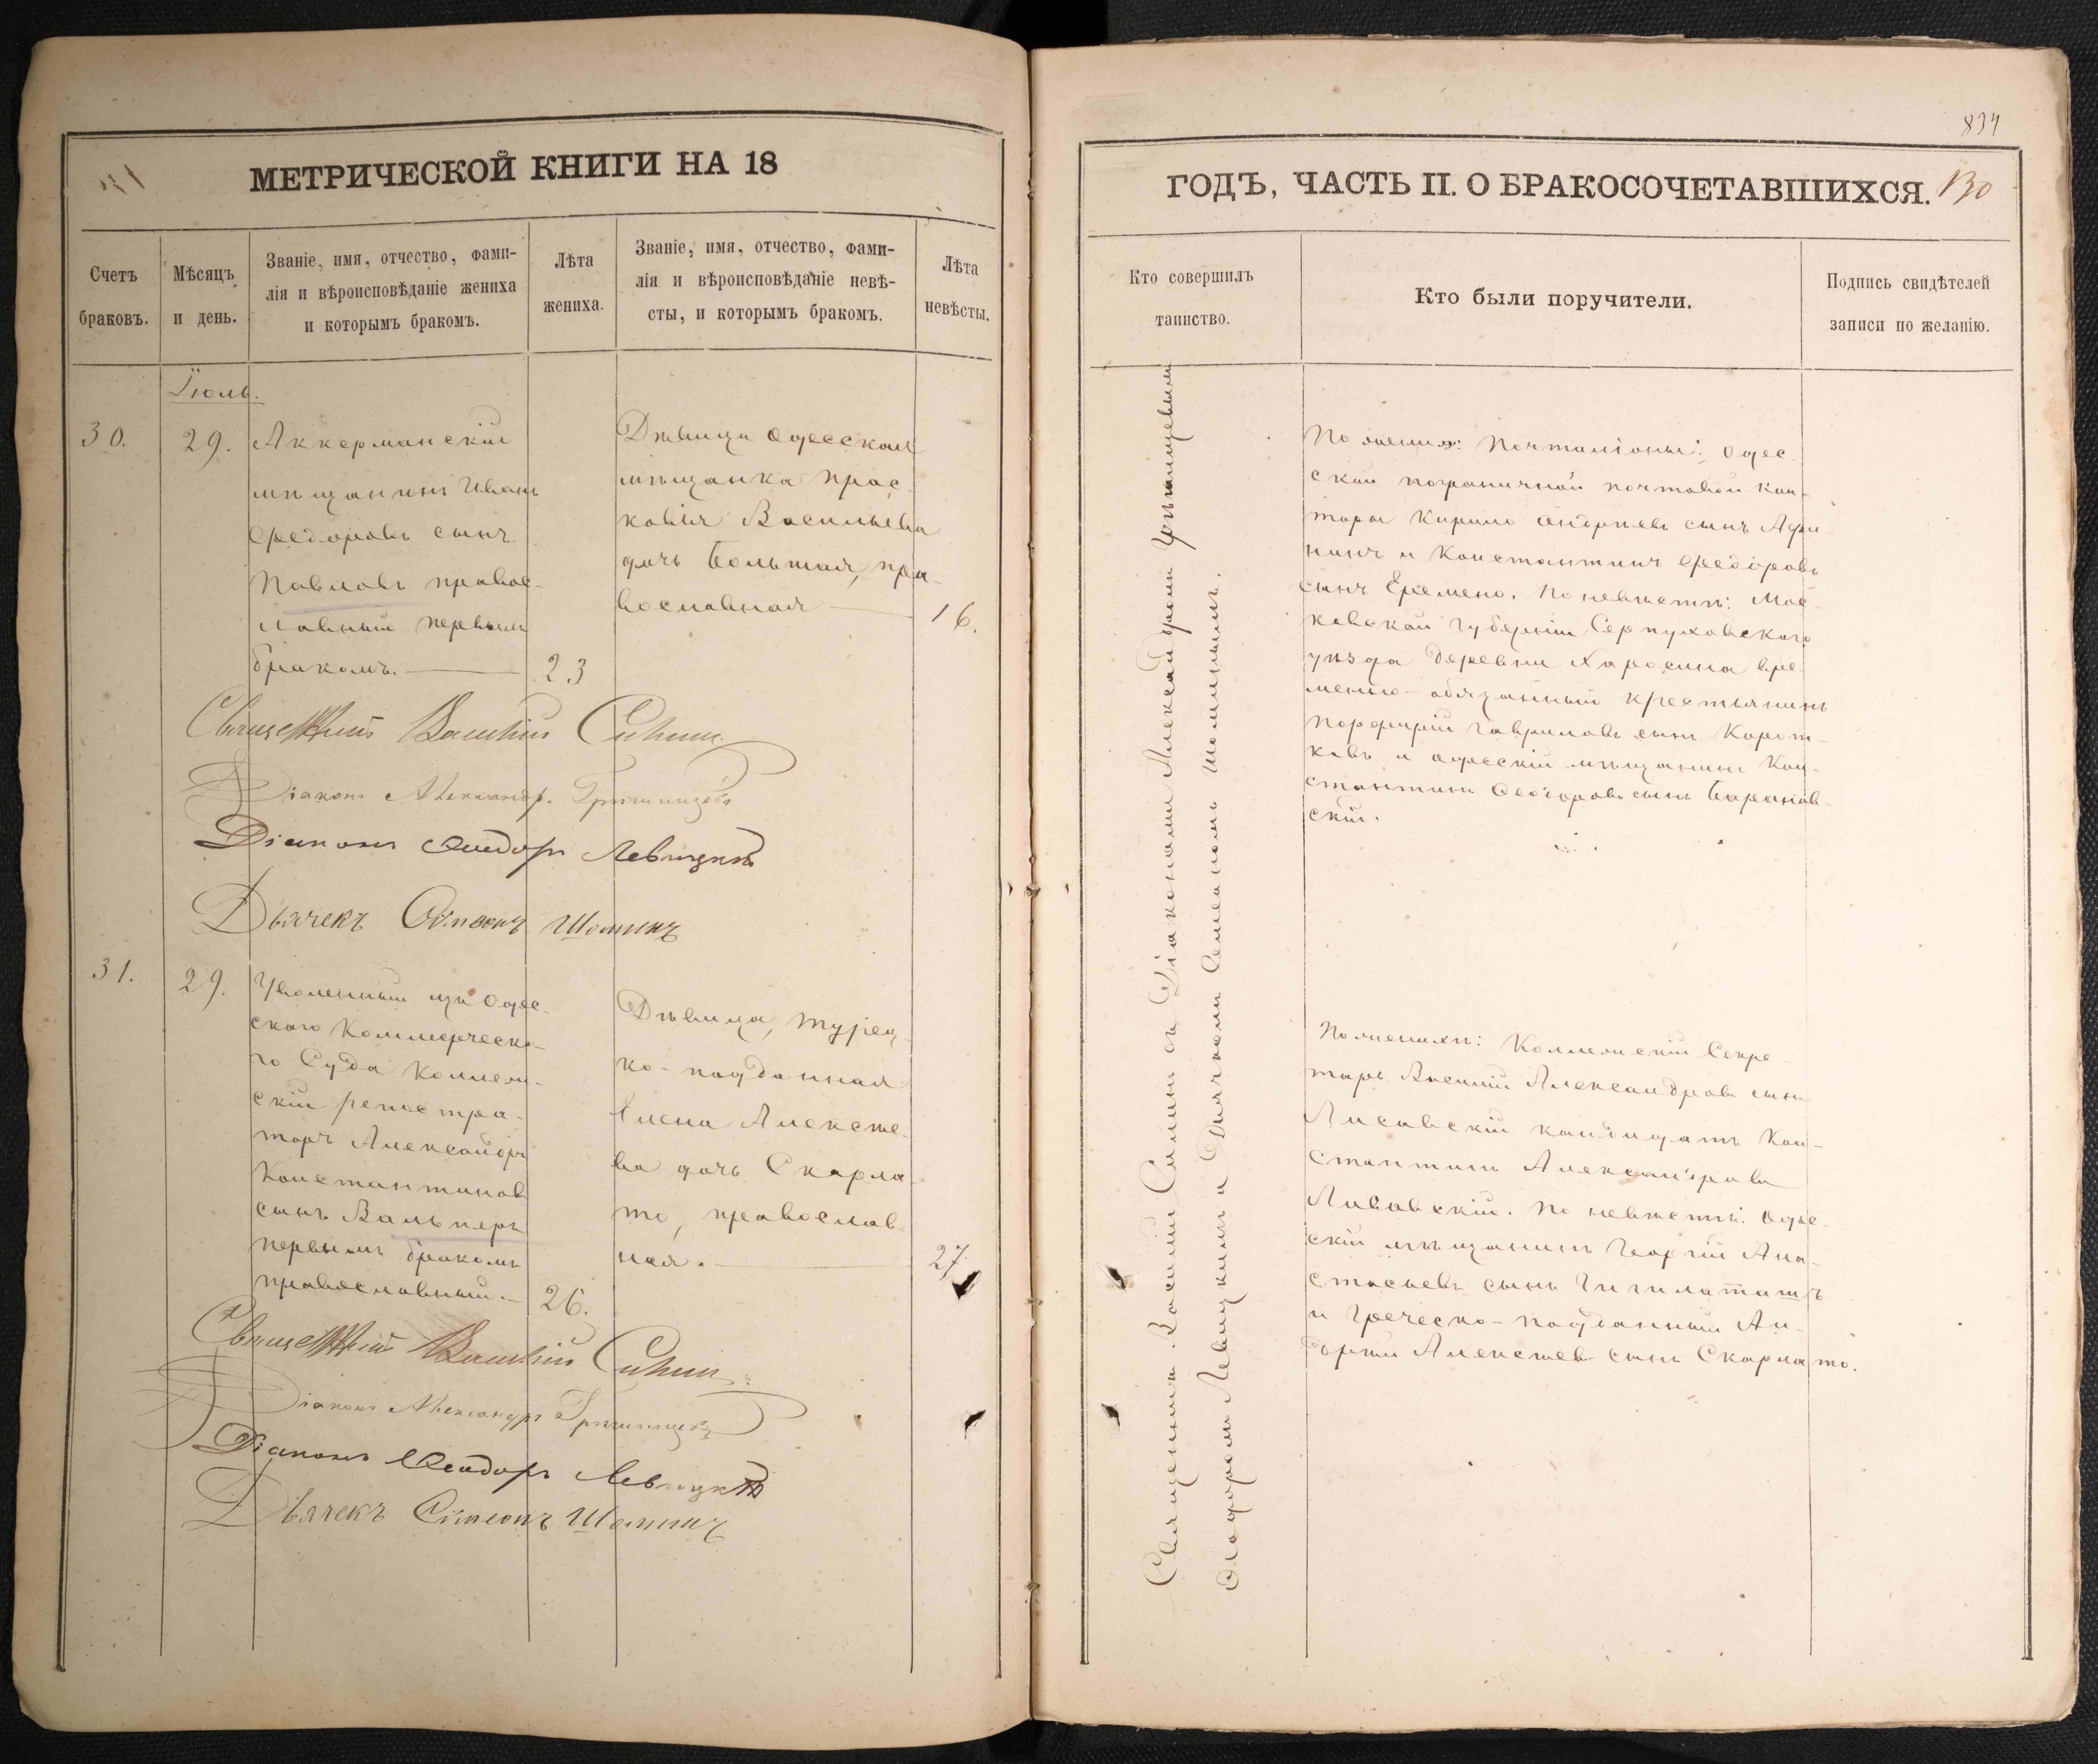 МЕТРИЧЕСКОЙ КНИГИ НА 18
Счетъ
браковъ.
Мѣсяцъ
и день.
Званіе, имя, отчество, фами-
лія и вѣроисповѣданіе жениха
и которымъ бракомъ.
Лѣта
жениха.
Званіе, имя, отчество, фами-
лія и вѣроисповѣданіе невѣ-
сты, и которымъ бракомъ.
Лѣта
невѣсты.
Іюль.
30.
29.
Аккерманскій
мѣщанинъ Иванъ
Ѳедоровъ сынъ
Павловъ правос-
лавный первымъ
бракомъ.
23
Дѣвица Одесская
мѣщанка Прас-
ковія Васильева
дочь Большая, пра-
вославная
16.
Священникъ Василій
Діаконъ Александр.
Діаконъ Ѳеодоръ Левицкій
Дьячекъ Сѵмеонъ Шоминъ
31.
29.
Уволенный изъ Одес-
скаго Коммерческа-
го Суда Коллеж-
скій регистра-
торъ Александръ
Константиновъ
сынъ Вальтеръ
первымъ бракомъ
православный.
26.
Дѣвица, турец-
ко-подданная
Елена Алексѣе-
ва дочь Скарла-
то, православ-
ная.
27.
Священникъ Василій
Діаконъ Александръ
Діаконъ Ѳеодоръ Левицкій
Дьячекъ Сѵмеонъ Шоминъ
834
ГОДЪ, ЧАСТЬ II. О БРАКОСОЧЕТАВШИХСЯ.
130
Кто совершилъ
таинство.
Кто были поручители.
Подпись свидѣтелей
записи по желанію.
Священникъ Василій съ Діакономъ Александромъ
Ѳеодоромъ Левицкимъ и Дьячкомъ Симеономъ Шоминымъ.
По женихѣ: Почталіоны: Одес-
ской пограничной почтовой кон-
торы Кирилъ Андреевъ сынъ
и Константинъ Ѳедоровъ
сынъ Еремено. По невѣстѣ: Мос-
ковской губерніи Серпуховскаго
уѣзда деревни вре-
менно-обязанный крестьянинъ
Порфирій Гавриловъ сынъ Корот-
ковъ и одесскій мѣщанинъ Кон-
стантинъ Ѳеодоровъ сынъ Баранов-
скій.
По женихѣ: Коллежскій Секре-
тарь Василій Александровъ сынъ
Лисавскій кандидатъ Кон-
стантинъ Александровъ
Лисавскій. По невѣстѣ: Одес-
скій мѣщанинъ Георгій Ана-
стасьевъ сынъ
и Греческо-подданный
Алексѣевъ сынъ Скарлато.